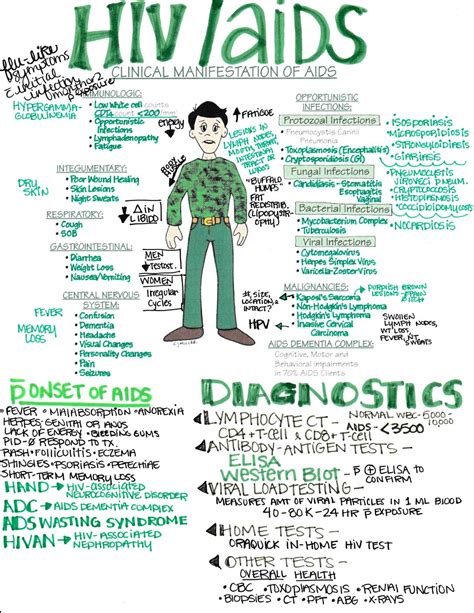 HIV/AIDS
flu-like
symptoms
initial
infection
CLINICAL MANIFESTATION OF AIDS
IMMUNOLOGIC:
HYPERGAMMA-
GLOBULINEMIA
• Low White cell counts:
CD4 counts <200/mm³
• Opportunistic
Infections
• Lymphadenopathy
• Fatigue
INTEGUMENTARY:
DRY
SKIN
• Poor Wound Healing
• Skin Lesions
• Night Sweats
RESPIRATORY:
• Cough
• SOB
GASTROINTESTINAL:
• Diarrhea
• Weight Loss
• Nausea/Vomiting
CENTRAL NERVOUS
SYSTEM:
FEVER
MEMORY
LOSS
• Confusion
• Dementia
• Headache
• Visual Changes
• Personality Changes
• Pain
• Seizures
energy
↑ FATIGUE
LESIONS IN
LYMPH NODES,
MOUTH, THROAT,
INTESTINAL
TRACT OR
LUNGS
"BUFFALO
HUMPS"
FAT
REDISTRIB.
(LIPODYSTR-
OPHY)
Δ IN
LIBIDO
MEN
↓ TESTOST.
WOMEN
Irregular
Cycles
#, SIZE,
LOCATION,
& INTACT?
HPV
OPPORTUNISTIC
INFECTIONS:
Protozoal Infections
• Pneumocystis Carini
Pneumonia
• Toxoplasmosis (Encephalitis)
• Cryptosporidiosis (GI)
Fungal Infections
• Candidiasis - Stomatitis
Esophagitis
Vaginal
Bacterial Infections
• Mycobacterium Complex
• Tuberculosis
Viral Infections
• Cytomegalovirus
• Herpes Simplex Virus
• Varicella-Zoster Virus
• ISOSPORIASIS
• MICROSPORIDIOSIS
• STRONGYLOIDIASIS
• GIARIASE
• PNEUMOCYSTIS
JIROVECI PNEUM.
• CRYPTOCOCCOSIS
• HISTOPLASMOSIS
• COCCIDIOIDOMYCOSIS
• NOCARDIOSIS
MALIGNANCIES:
• Kaposi's Sarcoma
• Non-Hodgkin's Lymphoma
• Hodgkin's Lymphoma
• Invasive Cervical
Carcinoma
PURPLISH BROWN
LESIONS
SWOLLEN
LYMPH NODES,
WT LOSS,
FEVER, NT.
SWEATS
AIDS DEMENTIA COMPLEX:
Cognitive, Motor and
Behavioral Impairments
in 70% AIDS Clients
ONSET OF AIDS
FEVER • MALABSORPTION • ANOREXIA
HERPES: GENITAL OR ANOS
LACK OF ENERGY • BLEEDING GUMS
PID - Ø RESPOND TO TX.
RASH • FOLLICUITIS • ECZEMA
SHINGLES • PSORIASIS • PETECHIAE
SHORT-TERM MEMORY LOSS
HAND → HIV-ASSOCIATED
NEUROCOGNITIVE DISORDER
ADC → AIDS DEMENTIA COMPLEX
AIDS WASTING SYNDROME
HIVAN → HIV-ASSOCIATED
NEPHROPATHY
DIAGNOSTICS
LYMPHOCYTE CT - NORMAL WBC-5000-10,000
AIDS - <3500
CD4+ T-CELL & CD8+ T-CELL
ANTIBODY-ANTIGEN TESTS
ELISA
Western Blot - p̄ ⊕ ELISA TO
CONFIRM
VIRAL LOAD TESTING -
MEASURES AMT OF VIRAL PARTICLES IN 1 ML BLOOD
40-80K - 24 HR p̄ EXPOSURE
HOME TESTS -
ORAQUICK IN-HOME HIV TEST
OTHER TESTS -
OVERALL HEALTH
• CBC • TOXOPLASMOSIS • RENAL FUNCTION
• BIOPSIES • CT • PPT • ABG • X-RAYS